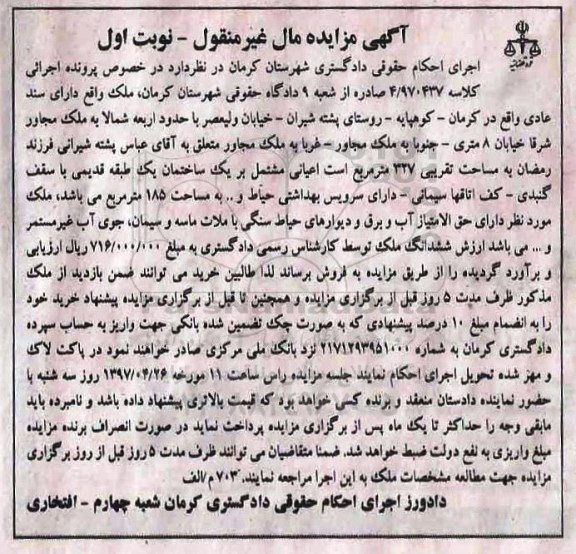 آگهی مزایده مال غیرمنقول - نوبت اول
اجرای احکام حقوقی دادگستری شهرستان کرمان در نظردارد در خصوص پرونده اجرائی
کلاسه ۴/۹۷۰۴۳۷ صادره از شعبه ۹ دادگاه حقوقی شهرستان کرمان، ملک واقع دارای سند
عادی واقع در کرمان - کوهپایه - روستای پشته شیران - خیابان ولیعصر با حدود اربعه شمالا به ملک مجاور
شرقا خیابان ۸ متری - جنوبا به ملک مجاور - غربا به ملک مجاور متعلق به آقای عباس پشته شیرانی فرزند
رمضان به مساحت تقریبی ۳۲۷ مترمربع است اعیانی مشتمل بر یک ساختمان یک طبقه قدیمی با سقف
گنبدی - کف اتاقها سیمانی - دارای سرویس بهداشتی حیاط و .. به مساحت ۱۸۵ مترمربع می باشد، ملک
مورد نظر دارای حق الامتیاز آب و برق و دیوارهای حیاط سنگی با ملات ماسه و سیمان، جوی آب غیرمستمر
و ... می باشد ارزش ششدانگ ملک توسط کارشناس رسمی دادگستری به مبلغ ۷۱۶/۰۰۰/۰۰۰ ریال ارزیابی
و برآورد گردیده را از طریق مزایده به فروش برساند لذا طالبین خرید می توانند ضمن بازدید از ملک
مذکور ظرف مدت ۵ روز قبل از برگزاری مزایده و همچنین تا قبل از برگزاری مزایده پیشنهاد خرید خود
را به انضمام مبلغ ۱۰ درصد پیشنهادی که به صورت چک تضمین شده بانکی جهت واریز به حساب سپرده
دادگستری کرمان به شماره ۲۱۷۱۲۹۳۹۵۱۰۰۰ نزد بانک ملی مرکزی صادر خواهند نمود در پاکت لاک
و مهر شده تحویل اجرای احکام نمایند جلسه مزایده راس ساعت ۱۱ مورخه ۱۳۹۷/۰۴/۲۶ روز سه شنبه با
حضور نماینده دادستان منعقد و برنده کسی خواهد بود که قیمت بالاتری پیشنهاد داده باشد و نامبرده باید
مابقی وجه را حداکثر تا یک ماه پس از برگزاری مزایده پرداخت نماید در صورت انصراف برنده مزایده
مبلغ واریزی به نفع دولت ضبط خواهد شد. ضمنا متقاضیان می توانند ظرف مدت ۵ روز قبل از روز برگزاری
مزایده جهت مطالعه مشخصات ملک به این اجرا مراجعه نمایند. ۷۰۳ م/الف
دادورز اجرای احکام حقوقی دادگستری کرمان شعبه چهارم - افتخاری